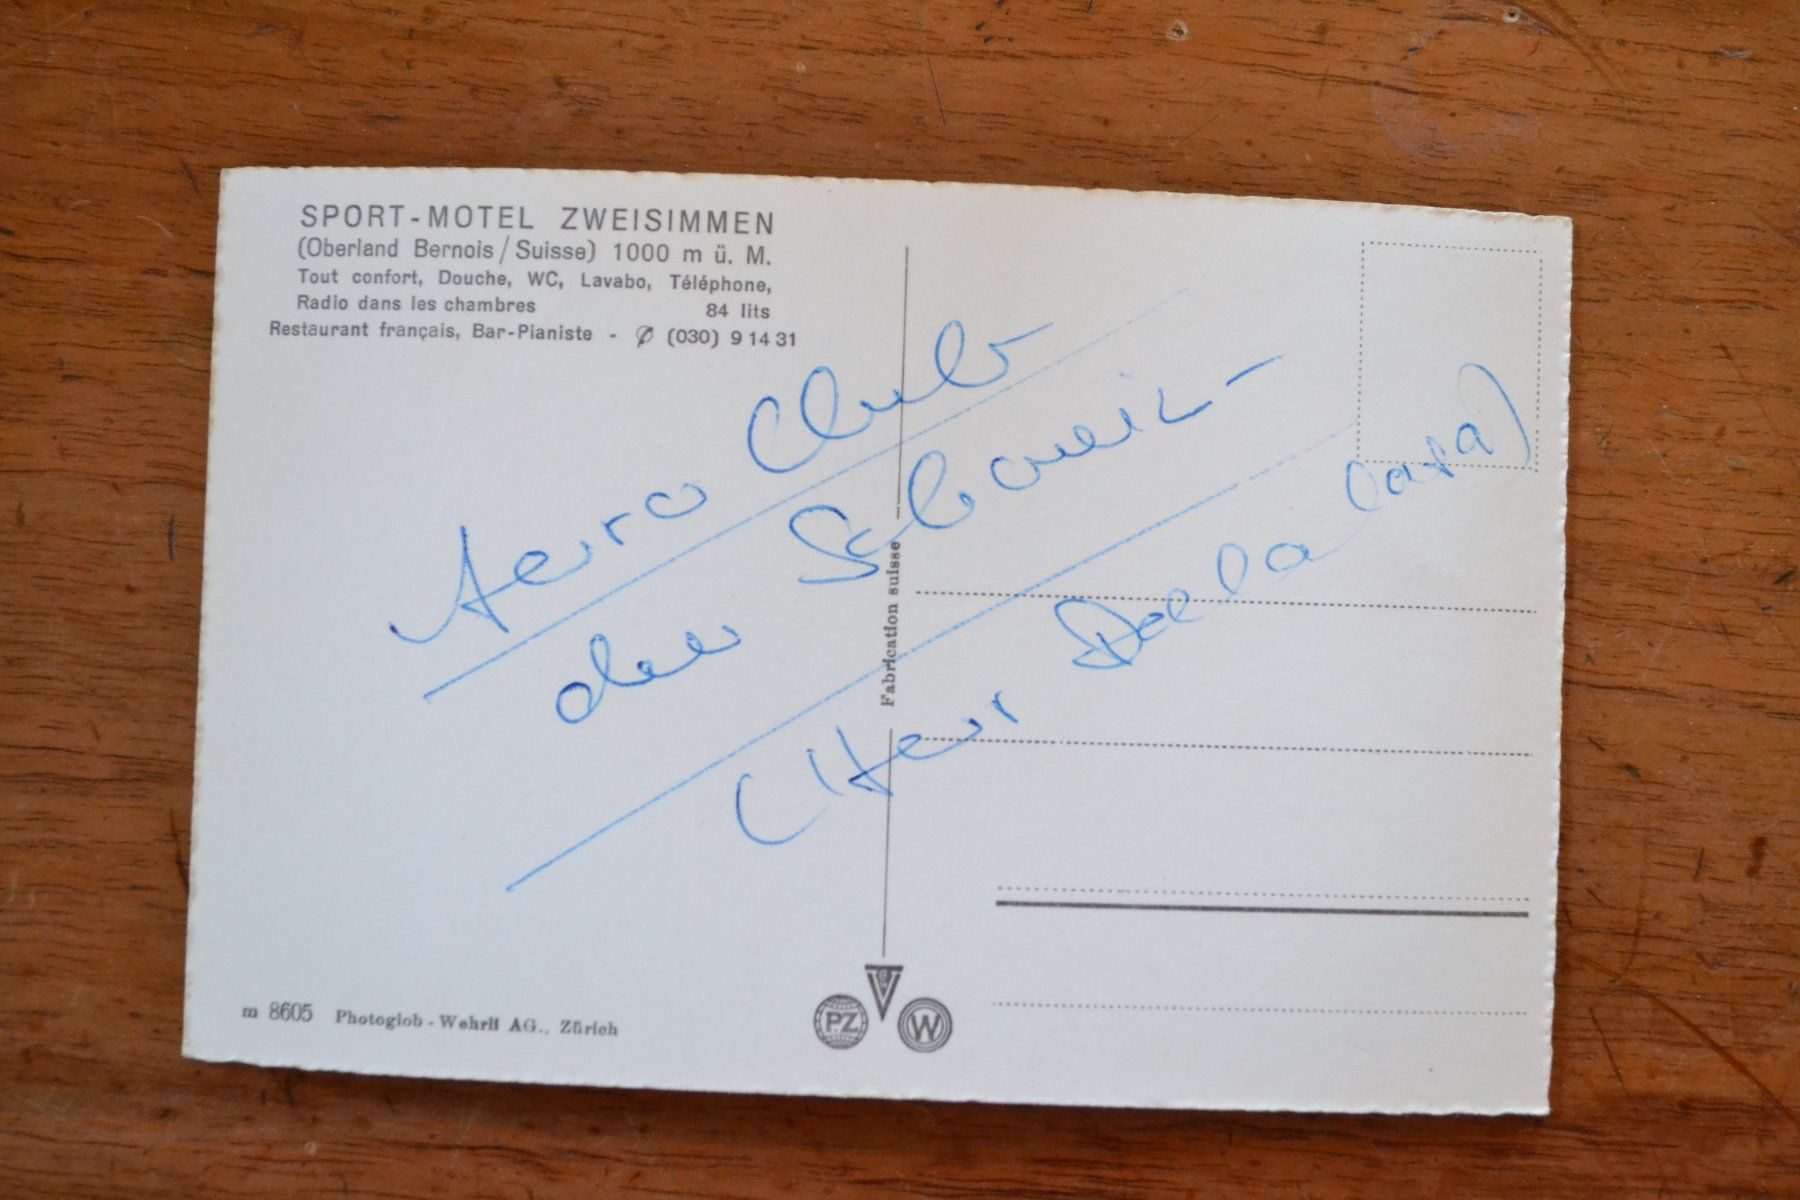 SPORT-MOTEL ZWEISIMMEN
(Oberland Bernois/Suisse) 1000 m ü. M.
Tout confort, Douche, WC, Lavabo, Téléphone,
Radio dans les chambres 84 lits
Restaurant français, Bar-Pianiste - ✆ (030) 9 14 31
Aero Club
der Schweiz -
(Herr Della Casa)
Fabrication suisse
m 8605 Photoglob-Wehrli AG., Zürich
PZ
VG
W